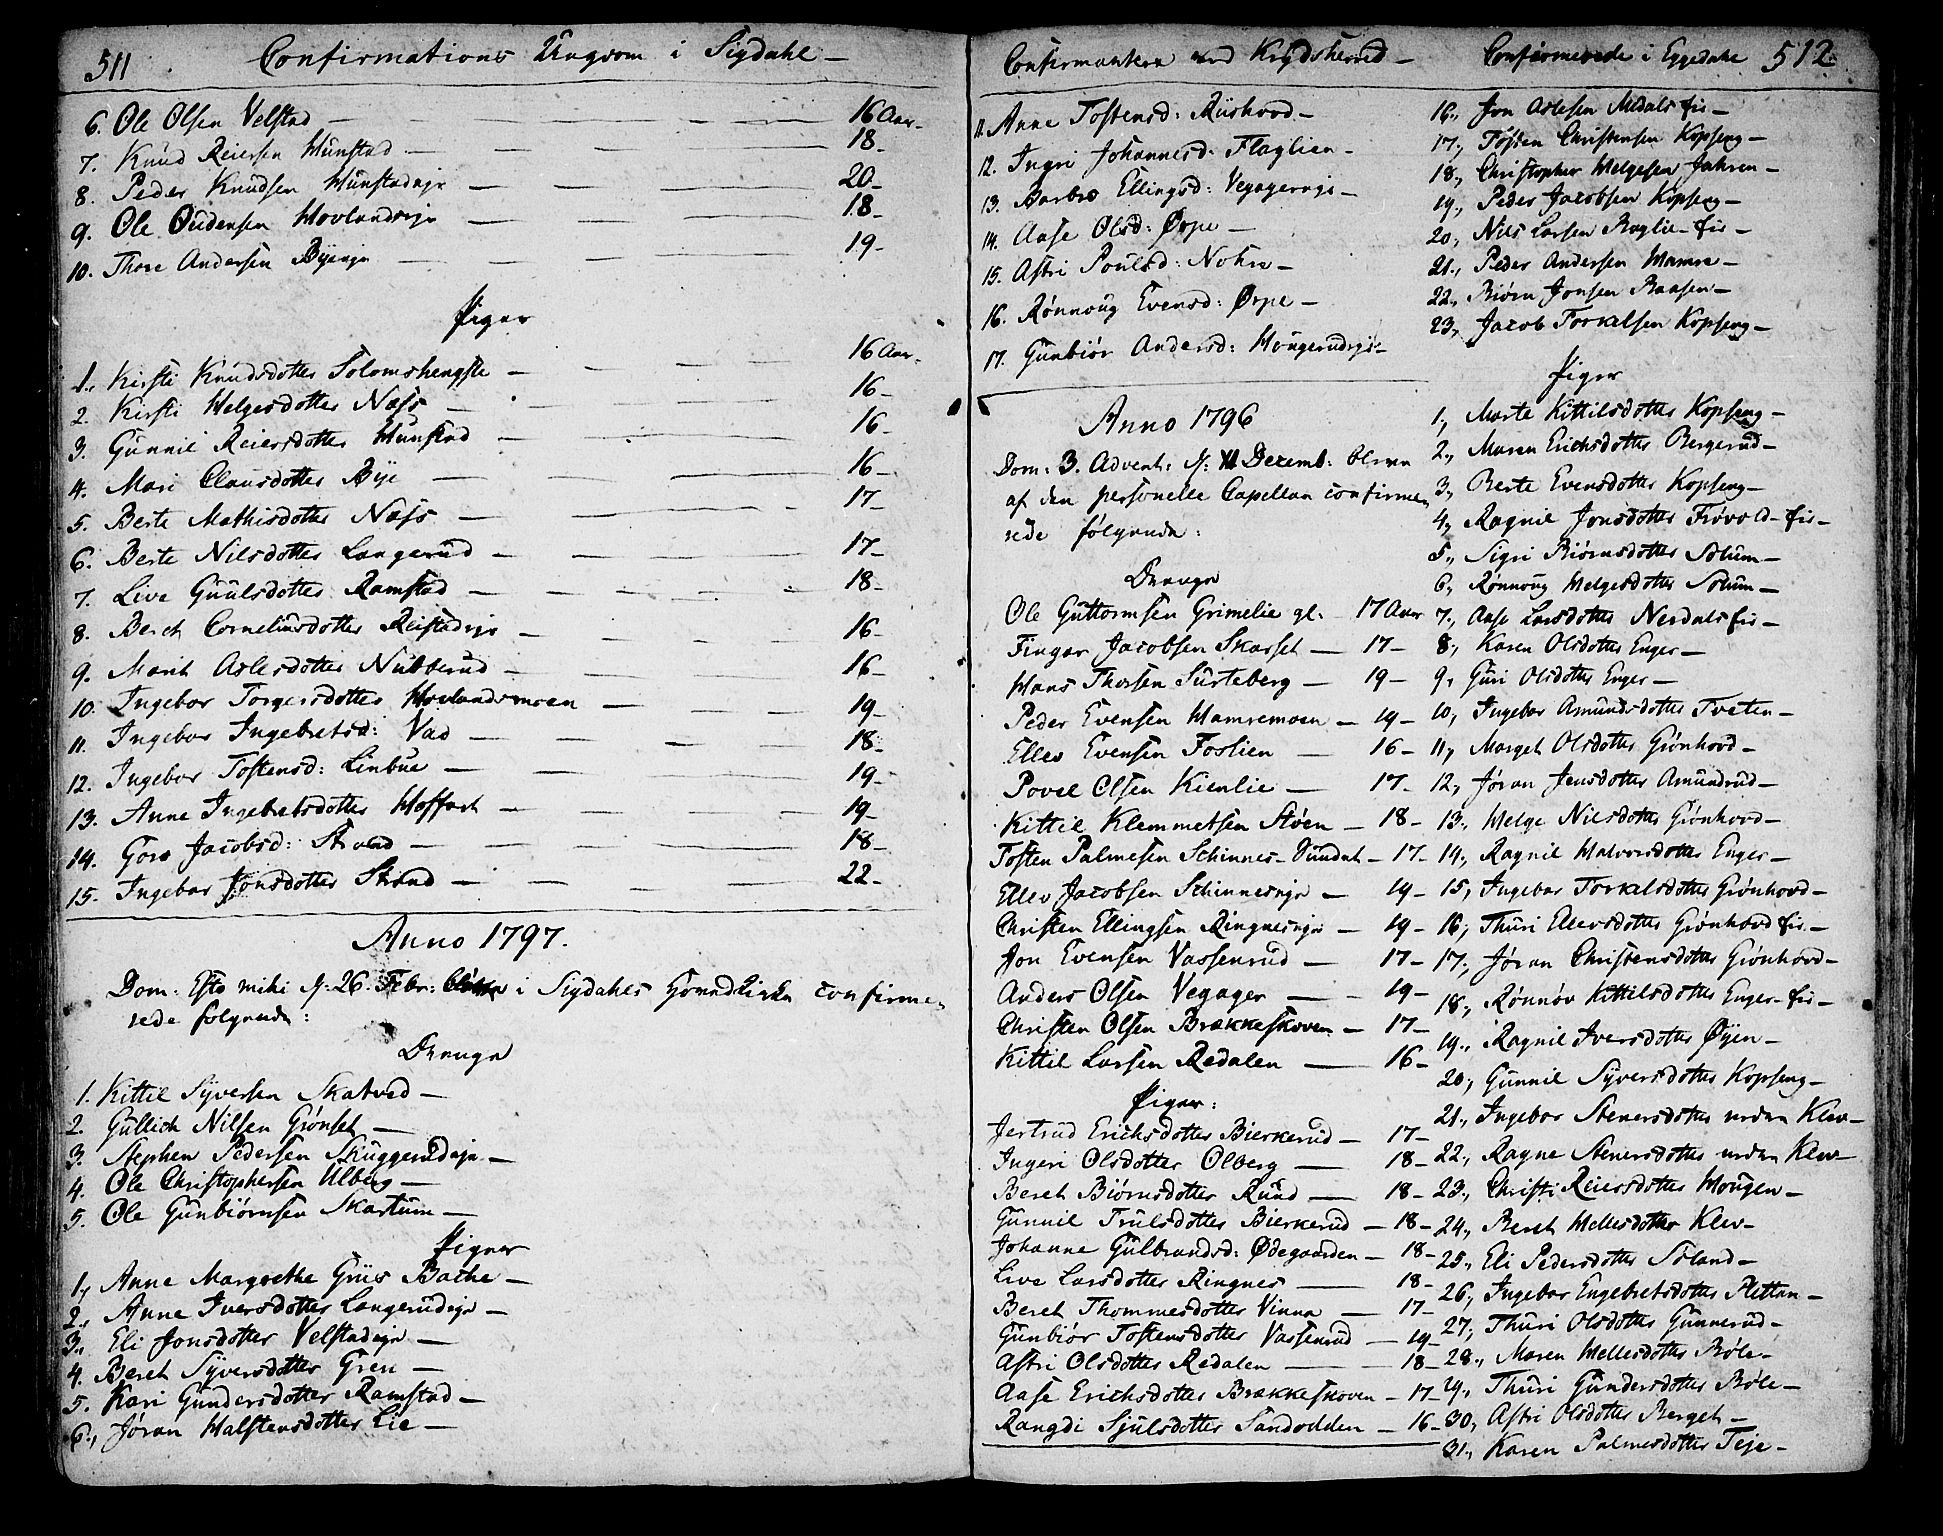 511 Confirmations Ungdom i Sigdahl —
6. Ole Olsen Velstad — 16 Aar.
7. Knud Reiersen Hunstad — 18 —
8. Peder Knudsen Hunstadeje — 20 —
9. Ole Oudensen Hovlandseje — 18 —
10. Thore Andersen Byeeje — 19 —
Piger
1., Kirsti Knudsdotter Solomshengsle — 16 Aar.
2. Kirsti Helgesdotter Næss — 16 —
3. Gunnil Reiersdotter Hunstad — 16 —
4. Mari Clausdotter Bye — 16 —
5. Berte Mathisdotter Næss — 17 —
6. Berte Nilsdotter Langerud — 17 —
7. Live Guulsdotter Ramstad — 18 —
8. Bereth Corneliusdotter Reistadeje — 16 —
9. Marit Aslesdotter Nubberud — 16 —
10. Ingebor Torgersdotter Hovlandsmoen — 19 —
11. Ingebor Ingebretsd: Vad — 18 —
12. Ingebor Tostensd: Linbue — 19 —
13. Anne Ingebretsdotter Hoffart — 19 —
14. Goro Jacobsd: Strand — 18 —
15. Ingebor Jonsdotter Strand — 22 —
Anno 1797.
Dom: Esto mihi d: 26. Febr: i Sigdahls Hovedkirke confirme-
rede følgende:
Drenge
1. Kittil Syversen Skatved —
2. Gullich Nilsen Grønset —
3. Stephen Pedersen Skuggerudeje —
4. Ole Christophersen Ulberg —
5. Ole Gunbiørnsen Skartum —
Piger
1., Anne Margrethe Grüs Bache —
2., Anne Iversdotter Langerudeje —
3., Eli Jonsdotter Velstadeje —
4. Bereth Syversdotter Gren —
5. Kari Gundersdotter Ramstad —
6., Jøran Halstensdotter Lie —
Confirmantere ved Krydsherred —
11. Anne Tostensd: Riishovd —
12. Ingri Johannesd: Flaglien —
13. Barbro Ellingsd: Vegagereje —
14. Aase Olsd: Ørpe —
15. Astri Poulsd: Nohre —
16. Rønnoug Evensd: Ørpe —
17. Gunbiør Andersd: Hougerudeje —
Anno 1796
Dom: 3. Advent: d: 11 Decemb: bleve
af den personelle Capellan confirme-
rede følgende:
Drenge
Ole Guttormsen Grimelie gl. — 17 Aar
Fingar Jacobsen Skarset — 17 —
Hans Thorsen Surteberg — 19 —
Peder Evensen Hamremoen — 19 —
Ellev Evensen Foslien — 16 —
Povel Olsen Kienlie — 17 —
Kittil Klemmetsen Støen — 18 —
Tosten Palmesen Schinnes-Sundet — 17 —
Ellev Jacobsen Schinneseje — 19 —
Christen Ellingsen Ringneseje — 19 —
Jon Evensen Vassenrud — 17 —
Anders Olsen Vegager — 19 —
Christen Olsen Brækkeskoven — 17 —
Kittil Larsen Redalen — 16 —
Piger:
Jertrud Erichsdotter Bierkerud — 17 —
Ingeri Olsdotter Olberg — 18 —
Bereth Biørnsdotter Rund — 18 —
Gunnil Trulsdotter Bierkerud — 18 —
Johanne Gulbrandsd: Ødegaarden — 18 —
Live Larsdotter Ringnes — 18 —
Bereth Thommesdotter Vinna — 17 —
Gunbiør Tostensdotter Vassenrud — 19 —
Astri Olsdotter Redalen — 18 —
Aase Erichsdotter Brækkeskoven — 17 —
Rangdi Sjulsdotter Sandodden — 16 —
Confirmerede i Eggedahl 512.
16., Jon Aslesen Medals fis —
17., Tosten Christensen Kopseng —
18., Christopher Helgesen Jahren —
19., Peder Jacobsen Kopseng —
20., Nils Larsen Roglie-fis —
21., Peder Andersen Hamre —
22., Biørn Jonsen Raasen —
23., Jacob Torkelsen Kopseng —
Piger
1., Marte Kittilsdotter Kopseng —
2., Maren Erichsdotter Bergerud —
3., Berte Evensdotter Kopseng —
4., Ragnil Jonsdotter Frøvold-fis —
5., Sigri Biørnsdotter Solum —
6., Rønnoug Helgesdotter Solum —
7., Aase Larsdotter Nerdals fis —
8., Karen Olsdotter Enger —
9., Guri Olsdotter Enger —
10., Ingebor Amundsdotter Tveten —
11., Marget Olsdotter Grønhovd —
12., Jøran Jensdotter Amundrud —
13., Helge Nilsdotter Grønhovd —
14., Ragnil Halvorsdotter Enger —
15., Ingebor Torkelsdotter Grønhovd —
16., Thuri Ellevsdotter Grønhovd fis. —
17., Jøran Christensdotter Grønhovd —
18., Rønnøv Kittilsdotter Enger-fis —
19., Ragnil Iversdotter Øyen —
20., Gunnil Syversdotter Kopseng —
21., Ingebor Stenersdotter neden Klev —
22., Ragne Stenersdotter neden Klev —
23., Christi Reiersdotter Hougen —
24., Bereth Hellesdotter Klev —
25., Eli Pedersdotter Soland —
26., Ingebor Engebretsdotter Slettan —
27., Thuri Olsdotter Gunnerud —
28., Maren Hellesdotter Bøle —
29., Thuri Gundersdotter Bøle —
30., Astri Olsdotter Berget —
31., Karen Palmesdotter Teje —